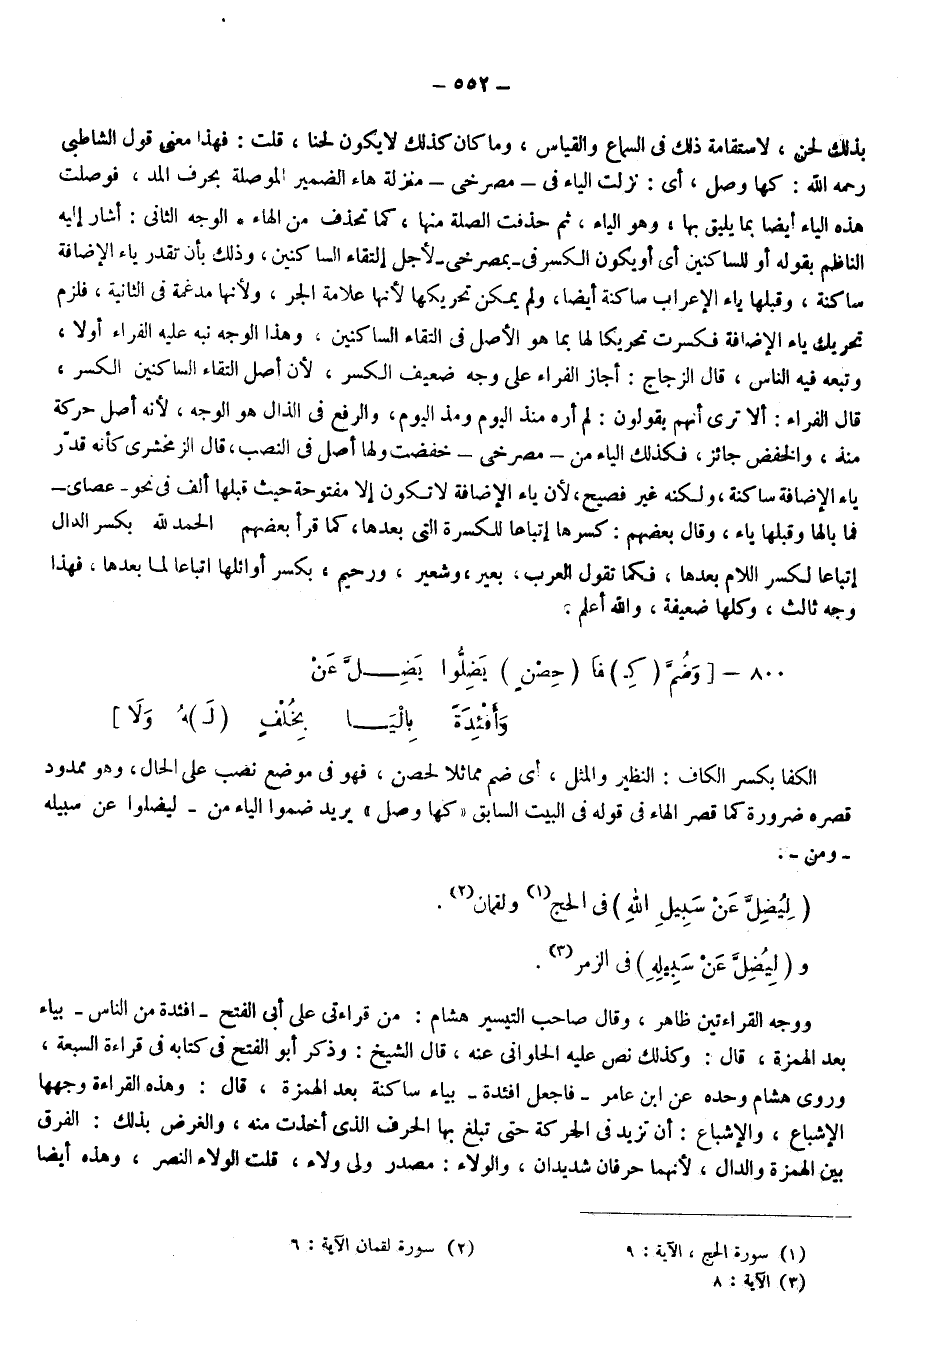 – ٥٥٢ –
بذلك لحن ، لاستقامة ذلك فى السماع والقياس ، وما كان كذلك لا يكون لحنا ، قلت : فهذا معنى قول الشاطبى
رحمه الله : كها وصل ، أى : نزلت الياء فى – مصرخى – منزلة هاء الضمير الموصلة بحرف المد ، فوصلت
هذه الياء أيضا بما يليق بها ، وهو الياء ، ثم حذفت الصلة منها ، كما تحذف من الهاء . الوجه الثانى : أشار إليه
الناظم بقوله أو للساكنين أى أو يكون الكسر فى – بمصرخى – لأجل إلتقاء الساكنين ، وذلك بأن تقدر ياء الإضافة
ساكنة ، وقبلها ياء الإعراب ساكنة أيضا، ولم يمكن تحريكها لأنها علامة الجر ، ولأنها مدغمة فى الثانية ، فلزم
تحريك ياء الإضافة فكسرت تحريكا لها بما هو الأصل فى التقاء الساكنين ، وهذا الوجه نبه عليه الفراء أولا ،
وتبعه فيه الناس ، قال الزجاج : أجاز الفراء على وجه ضعيف الكسر ، لأن أصل التقاء الساكنين الكسر ،
قال الفراء : ألا ترى أنهم يقولون : لم أره منذ اليوم ومذ اليوم، والرفع فى الذال هو الوجه ، لأنه أصل حركة
منذ ، والخفض جائز ، فكذلك الياء من – مصرخى – خفضت ولها أصل فى النصب، قال الزمخشرى كأنه قدّر
ياء الإضافة ساكنة ،ولكنه غير فصيح، لأن ياء الإضافة لا تكون إلا مفتوحة حيث قبلها ألف فى نحو – عصاى –
فما بالها وقبلها ياء ، وقال بعضهم : كسرها إتباعا للكسرة التى بعدها، كما قرأ بعضهم الحمد لله بكسر الدال
إتباعا لكسر اللام بعدها ، فكما تقول العرب ، بعير ،وشعير ، ورحيم ، بكسر أوائلها اتباعا لما بعدها ، فهذا
وجه ثالث ، وكلها ضعيفة ، والله أعلم :
٨٠٠ – [ وَضُمَّ ( كِـ ) فَا ( حِصْنٍ ) يَضِلُّوا يَضِـــلَّ عَنْ
وَأَفْئِدَةً بِالْيَـــا بِخُلْفٍ ( لَـ )هُ وَلَا ]
الكفا بكسر الكاف : النظير والمثل ، أى ضم مماثلا لحصن ، فهو فى موضع نصب على الحال، وهو ممدود
قصره ضرورة كما قصر الهاء فى قوله فى البيت السابق « كها وصل » يريد ضموا الياء من – ليضلوا عن سبيله
– ومن – :
( لِيُضِلَّ عَنْ سَبِيلِ اللهِ ) فى الحج(١) ولقمان(٢) .
و ( لِيُضِلَّ عَنْ سَبِيلِهِ ) فى الزمر(٣) .
ووجه القراءتين ظاهر ، وقال صاحب التيسير هشام : من قراءتى على أبى الفتح – افئدة من الناس – بياء
بعد الهمزة ، قال : وكذلك نص عليه الحلوانى عنه ، قال الشيخ : وذكر أبو الفتح فى كتابه فى قراءة السبعة ،
وروى هشام وحده عن ابن عامر – فاجعل افئدة – بياء ساكنة بعد الهمزة ، قال : وهذه القراءة وجهها
الإشباع ، والإشباع : أن تزيد فى الحركة حتى تبلغ بها الحرف الذى أخذت منه ، والغرض بذلك : الفرق
بين الهمزة والدال ، لأنهما حرفان شديدان ، والولاء : مصدر ولى ولاء ، قلت الولاء النصر ، وهذه أيضا
(١) سورة الحج ، الآية : ٩ (٢) سورة لقمان الآية : ٦
(٣) الآية : ٨